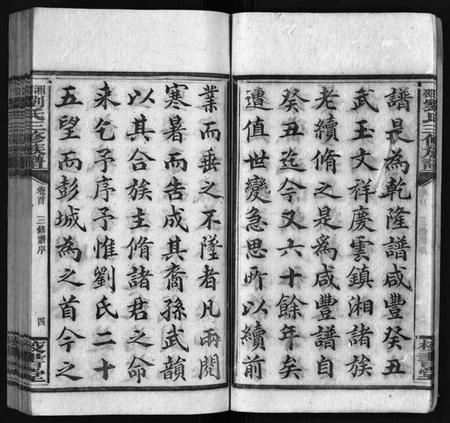 譜是為乾隆譜咸豐癸丑
武玉文祥慶雲鎮湘諸族
老續脩之是爲咸豐譜自
癸丑迄今又六十餘年矣
遭值世變急思所以續前
業而垂之不墜者凡兩閱
寒暑而告成其裔孫武韻
以其合族主脩諸君之命
來乞予序予惟劉氏二十
五望而彭城為之首今之
湘劉氏三修族譜
卷首
三修譜序
四